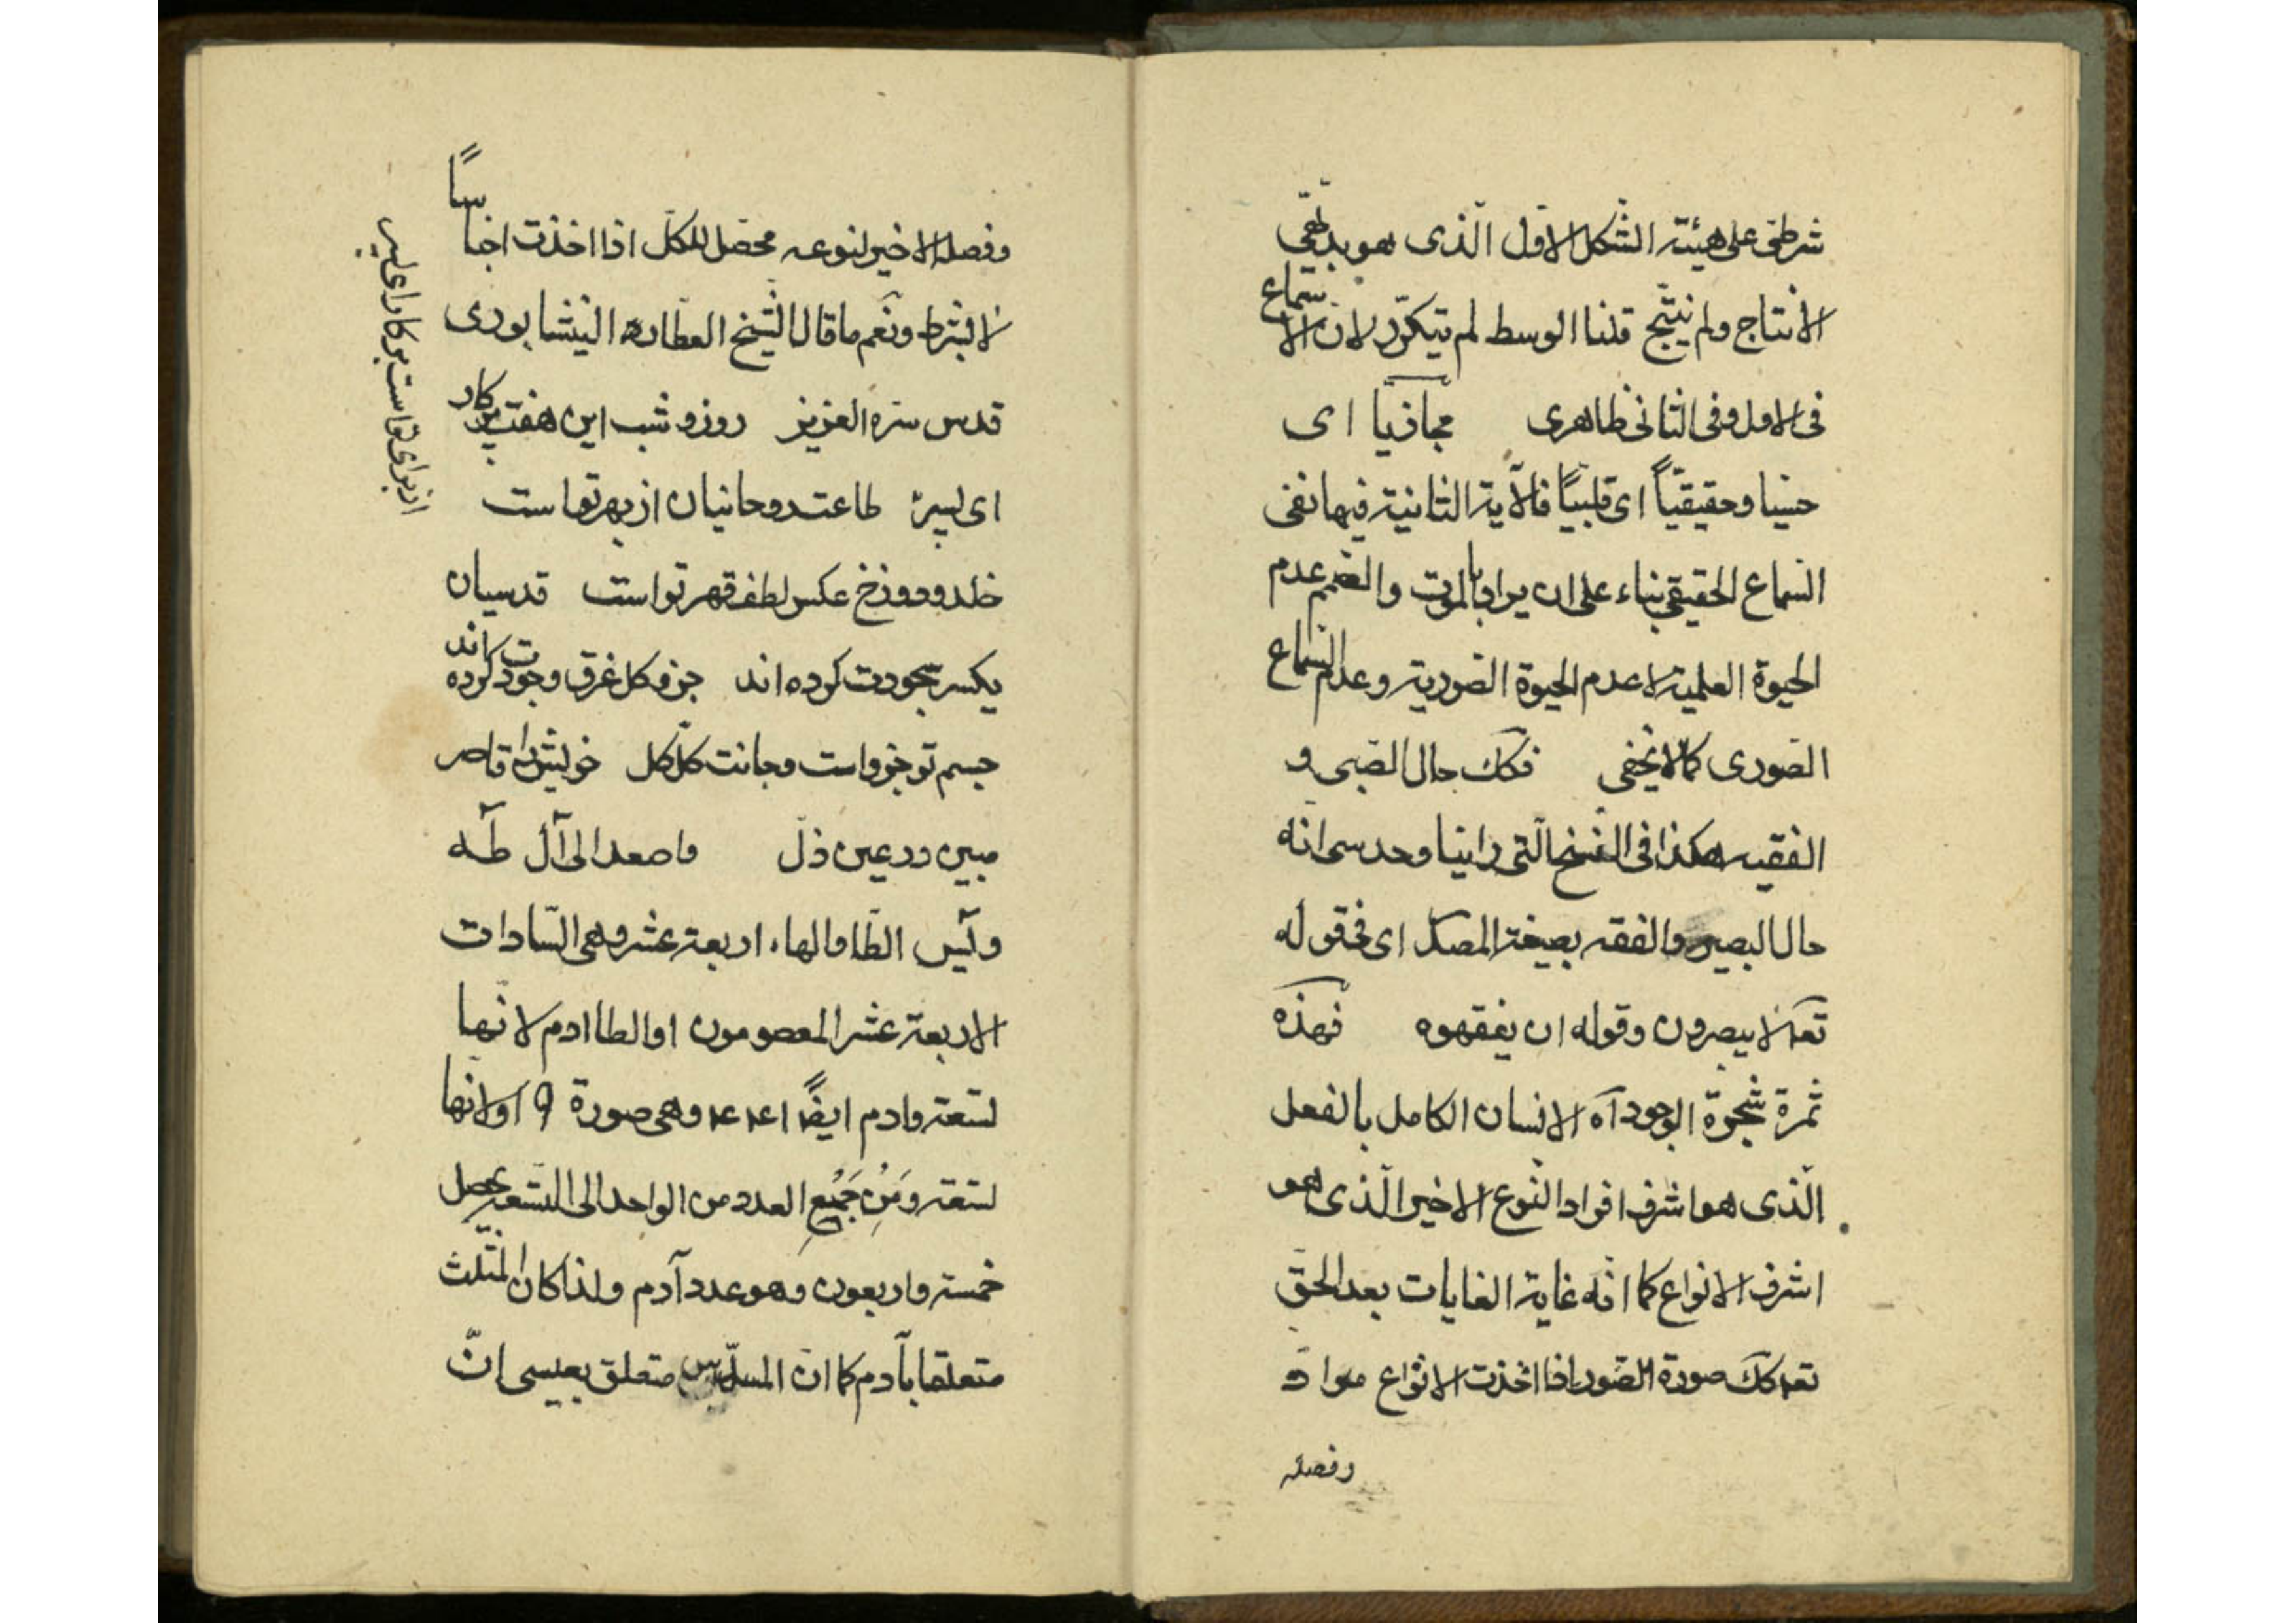 شرطی علی هیئة الشکل الاول الّذی هو بدیهی
الانتاج ولم ینتج قلنا الوسط لم یتکرّر لانّ الاستماع
فی الاول وفی الثانی ظاهری مجازیا ای
حسیا وحقیقیّاً ای قلبیّاً فالآیة الثانیة فیها نفی
السّماع الحقیقی بناء علی ان یراد بالموت والصّمم عدم
الحیوة العلمیة لا عدم الحیوة الصّوریة وعدم السّماع
الصّوری کما لا یخفی فکک حال الصّبی و
الفقیه هکذا فی النسخ الّتی راینا وحدسی انّه
حال البصیر والفقه بصیغة المصدر ای فی قوله
تعه لا یبصرون وقوله ان یفقهوه فهذه
ثمرة شجرة الوجود آه الانسان الکامل بالفعل
الّذی هو اشرف افراد النّوع الاخیر الّذی هو
اشرف الانواع کما انّه غایة الغایات بعد الحقّ
تعه کک صورة الصّور اذا اخذت الانواع موادّ
وفصله
وفصله الاخیر لنوعه محصّل للکلّ اذا اخذت اجناساً
لا بشرط ونعم ما قال الشّیخ العطّار النیشابوری
قدس سرّه العزیز روز و شب این هفت پرکار
ای پسر طاعت روحانیان از بهر تواست
خلد و دوزخ عکس لطف و قهر تواست قدسیان
یکسر سجودت کرده اند جزو و کل غرق وجودت کرده اند
جسم تو جزو است و جانت کلّ کل خویش را قاصر
مبین در عین ذلّ واصعد الی آل طٓه
و یٓس الطا والهاء اربعة عشر وهی السّادات
الاربعة عشر المعصومون او الطا ادم لانّها
تسعة وادم ایضاً ١٤٤ وهی صورة ٩ او لانّها
تسعة ومن جمیع العدد من الواحد الی التّسعة یحصل
خمسة واربعون وهو عدد آدم ولذا کان المثلّث
متعلقا بآدم کما انّ المسدّس متعلق بعیسی انّ
از برای تواست بر کار ای پسر